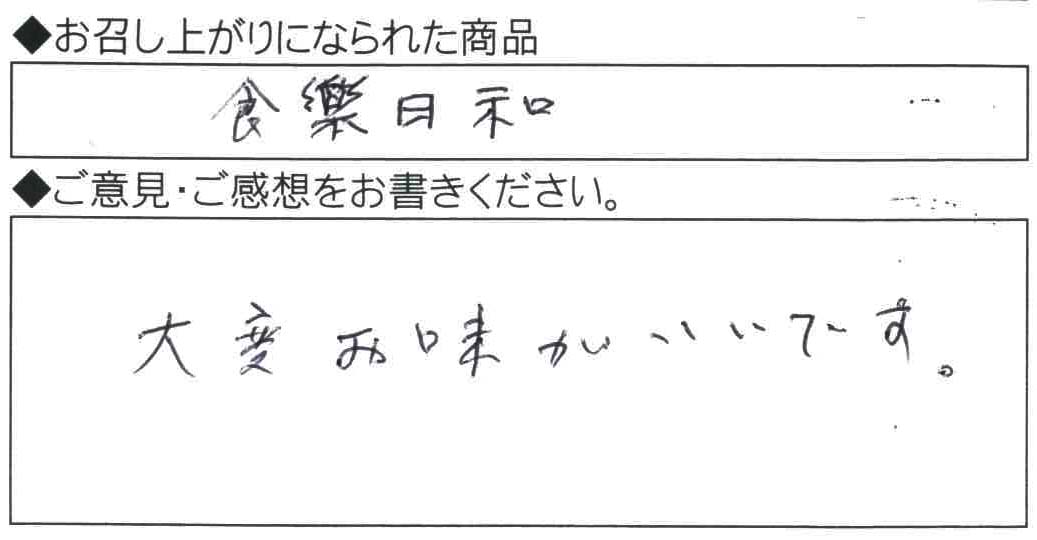 ◆お召し上がりになられた商品
食樂日和
◆ご意見・ご感想をお書きください。
大変お味がいいです。